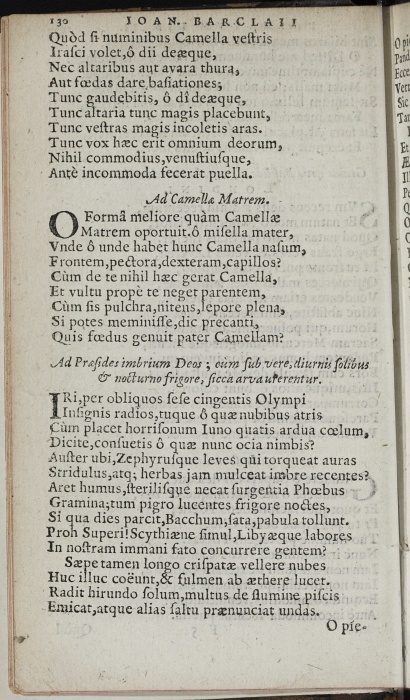 130 IOAN. BARCLAII
Quòd si numinibus Camella vestris
Irasci volet, ô dii deæque,
Nec altaribus aut avara thura,
Aut fœdas dare basiationes;
Tunc gaudebitis, ô dî deæque,
Tunc altaria tunc magis placebunt,
Tunc vestras magis incoletis aras.
Tunc vox hæc erit omnium deorum,
Nihil commodius, venustiusque,
Antè incommoda fecerat puella.
Ad Camellæ Matrem.
O Formâ meliore quàm Camellæ
Matrem oportuit. ô misella mater,
Vnde ô unde habet hunc Camella nasum,
Frontem, pectora, dexteram, capillos?
Cùm de te nihil hæc gerat Camella,
Et vultu propè te neget parentem,
Cùm sis pulchra, nitens, lepore plena,
Si potes meminisse, dic precanti,
Quis fœdus genuit pater Camellam?
Ad Præsides imbrium Deos; cùm sub vere, diurnis solibus
& nocturno frigore, sicca arva uterentur.
IRi, per obliquos sese cingentis Olympi
Insignis radios, tuque ô quæ nubibus atris
Cùm placet horrisonum Iuno quatis ardua cœlum,
Dicite, consuetis ô quæ nunc ocia nimbis?
Auster ubi, Zephyrusque leves qui torqueat auras
Stridulus, atq; herbas jam mulceat imbre recentes?
Aret humus, sterilisque necat surgentia Phœbus
Gramina; tum pigro lucentes frigore noctes,
Si qua dies parcit, Bacchum, sata, pabula tollunt.
Proh Superi! Scythiæne simul, Libyæque labores
In nostram immani fato concurrere gentem?
Sæpe tamen longo crispatæ vellere nubes
Huc illuc coëunt, & fulmen ab æthere lucet.
Radit hirundo solum, multus de flumine piscis
Emicat, atque alias saltu prænunciat undas.
O pie-